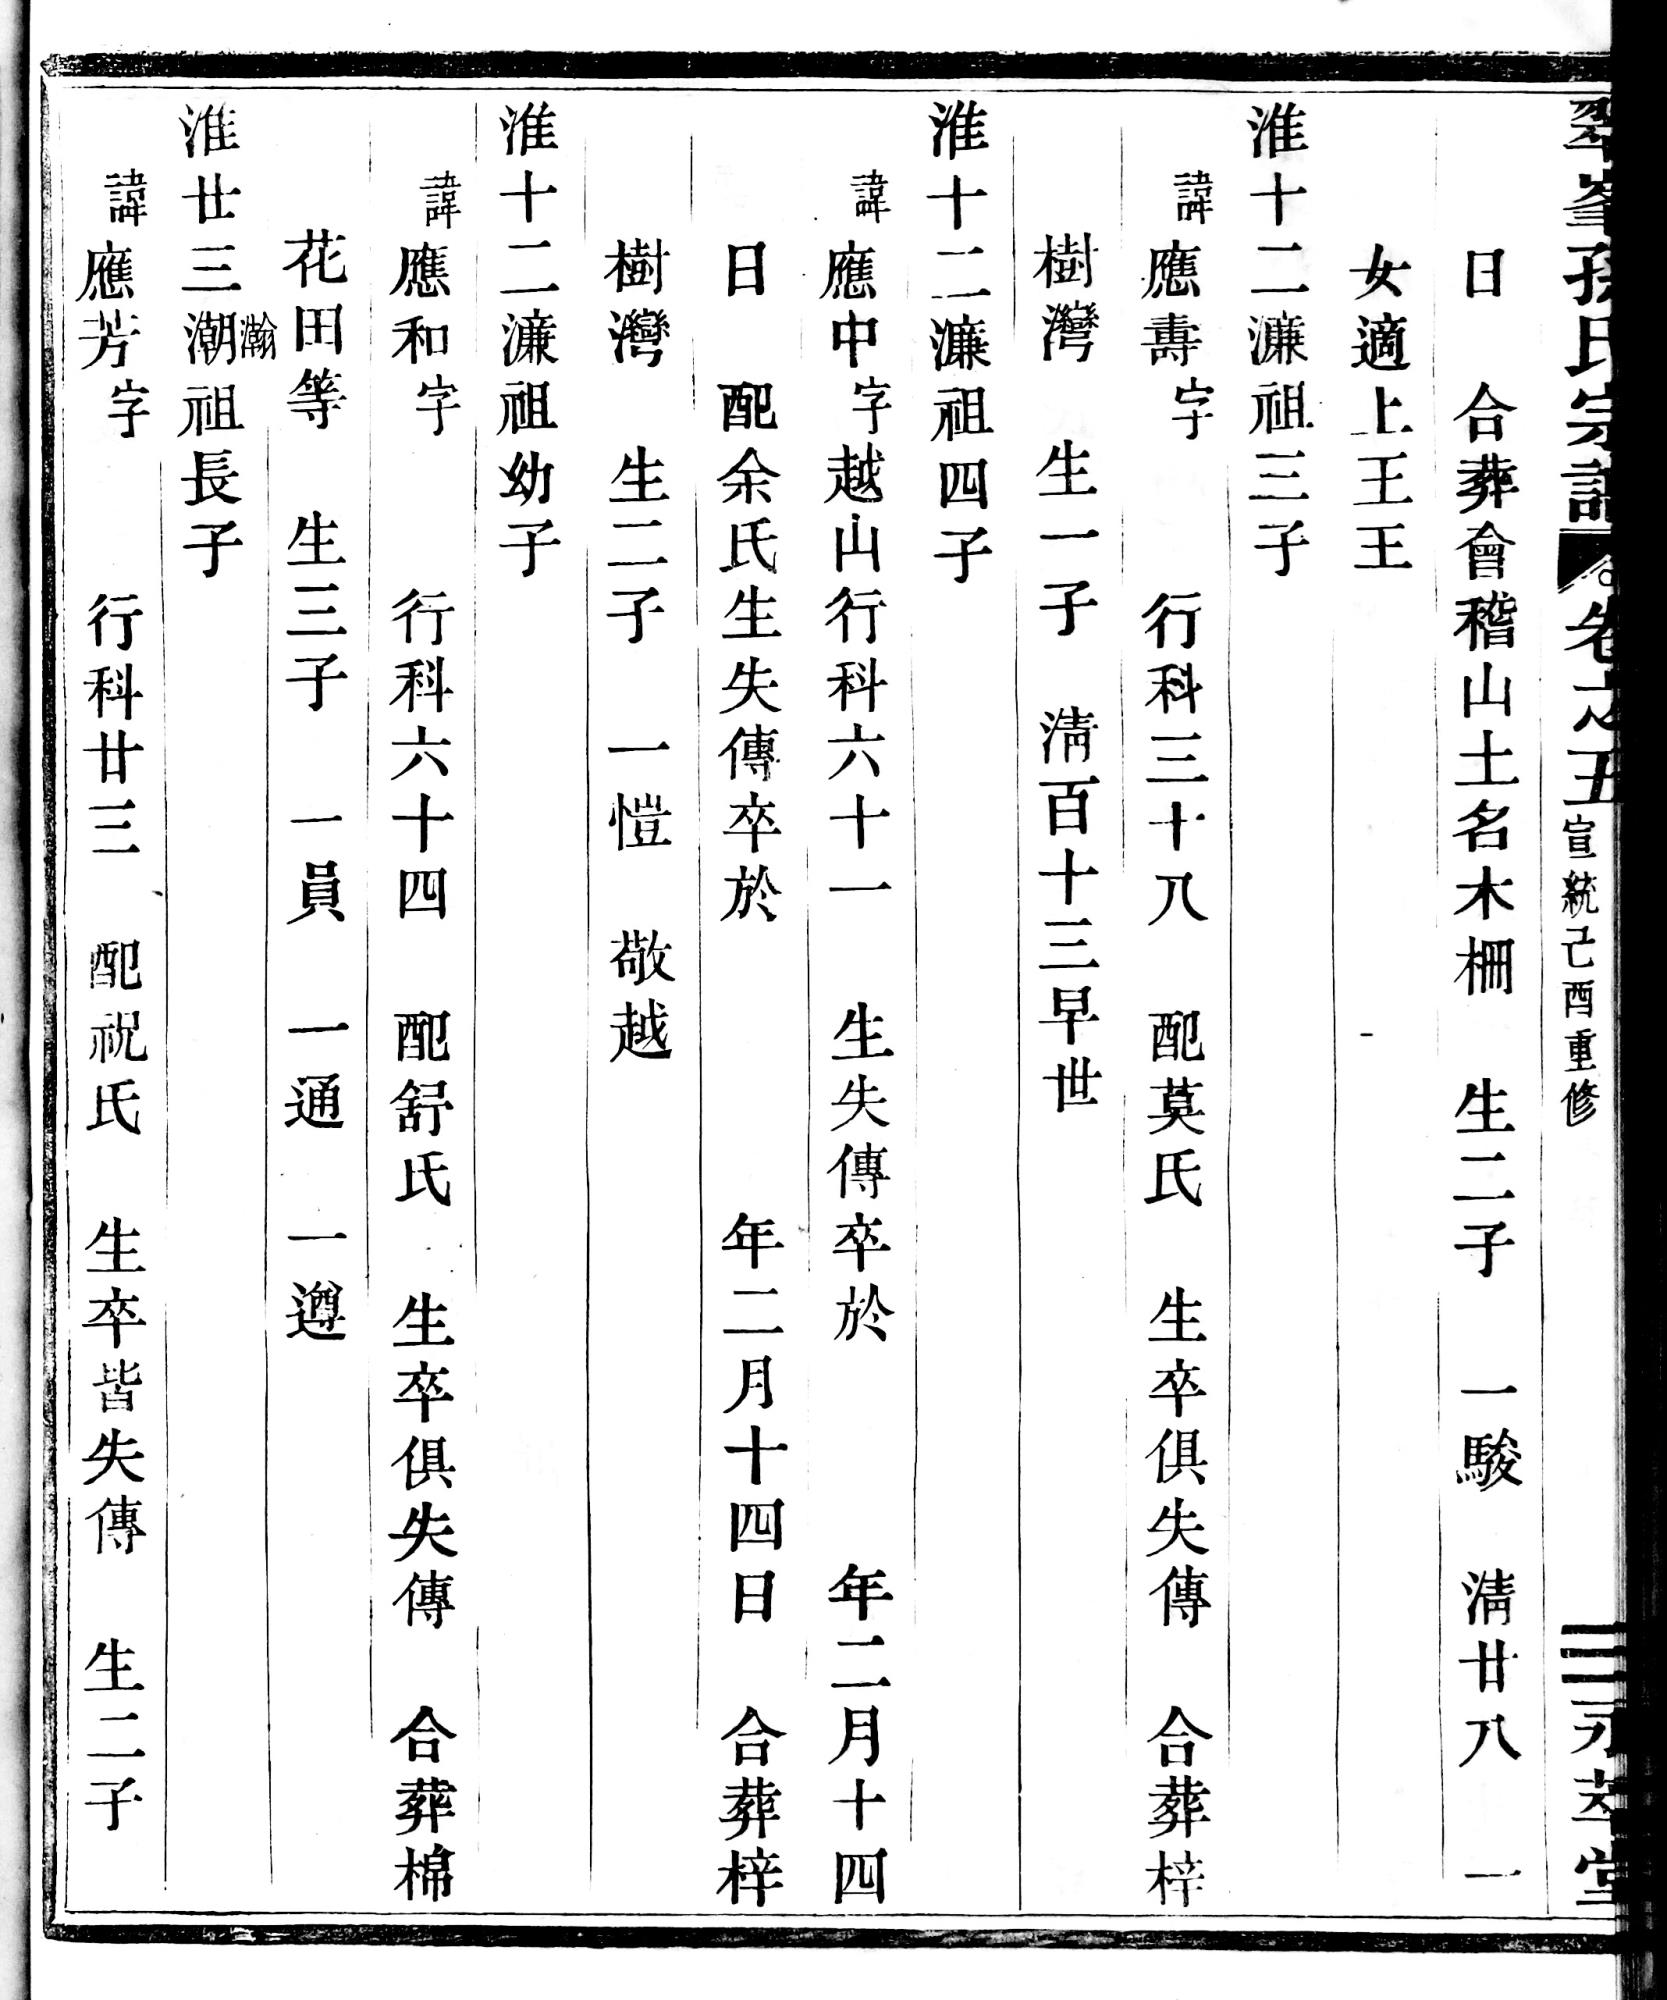 翠峯孫氏宗譜 卷之五 宣統己酉重修 永萃堂
日 合葬會稽山土名木柵 生二子 一駿 淸廿八 一
女適上王王
淮十二濂祖三子
諱應壽字 行科三十八 配莫氏 生卒俱失傳 合葬梓
樹灣 生一子 淸百十三早世
淮十二濂祖四子
諱應中字越山行科六十一 生失傳卒於 年二月十四
日 配余氏生失傳卒於 年二月十四日 合葬梓
樹灣 生二子 一愷 敬越
淮十二濂祖幼子
諱應和字 行科六十四 配舒氏 生卒俱失傳 合葬棉
花田等 生三子 一員 一通 一遵
淮廿三潮瀚祖長子
諱應芳字 行科廿三 配祝氏 生卒皆失傳 生二子